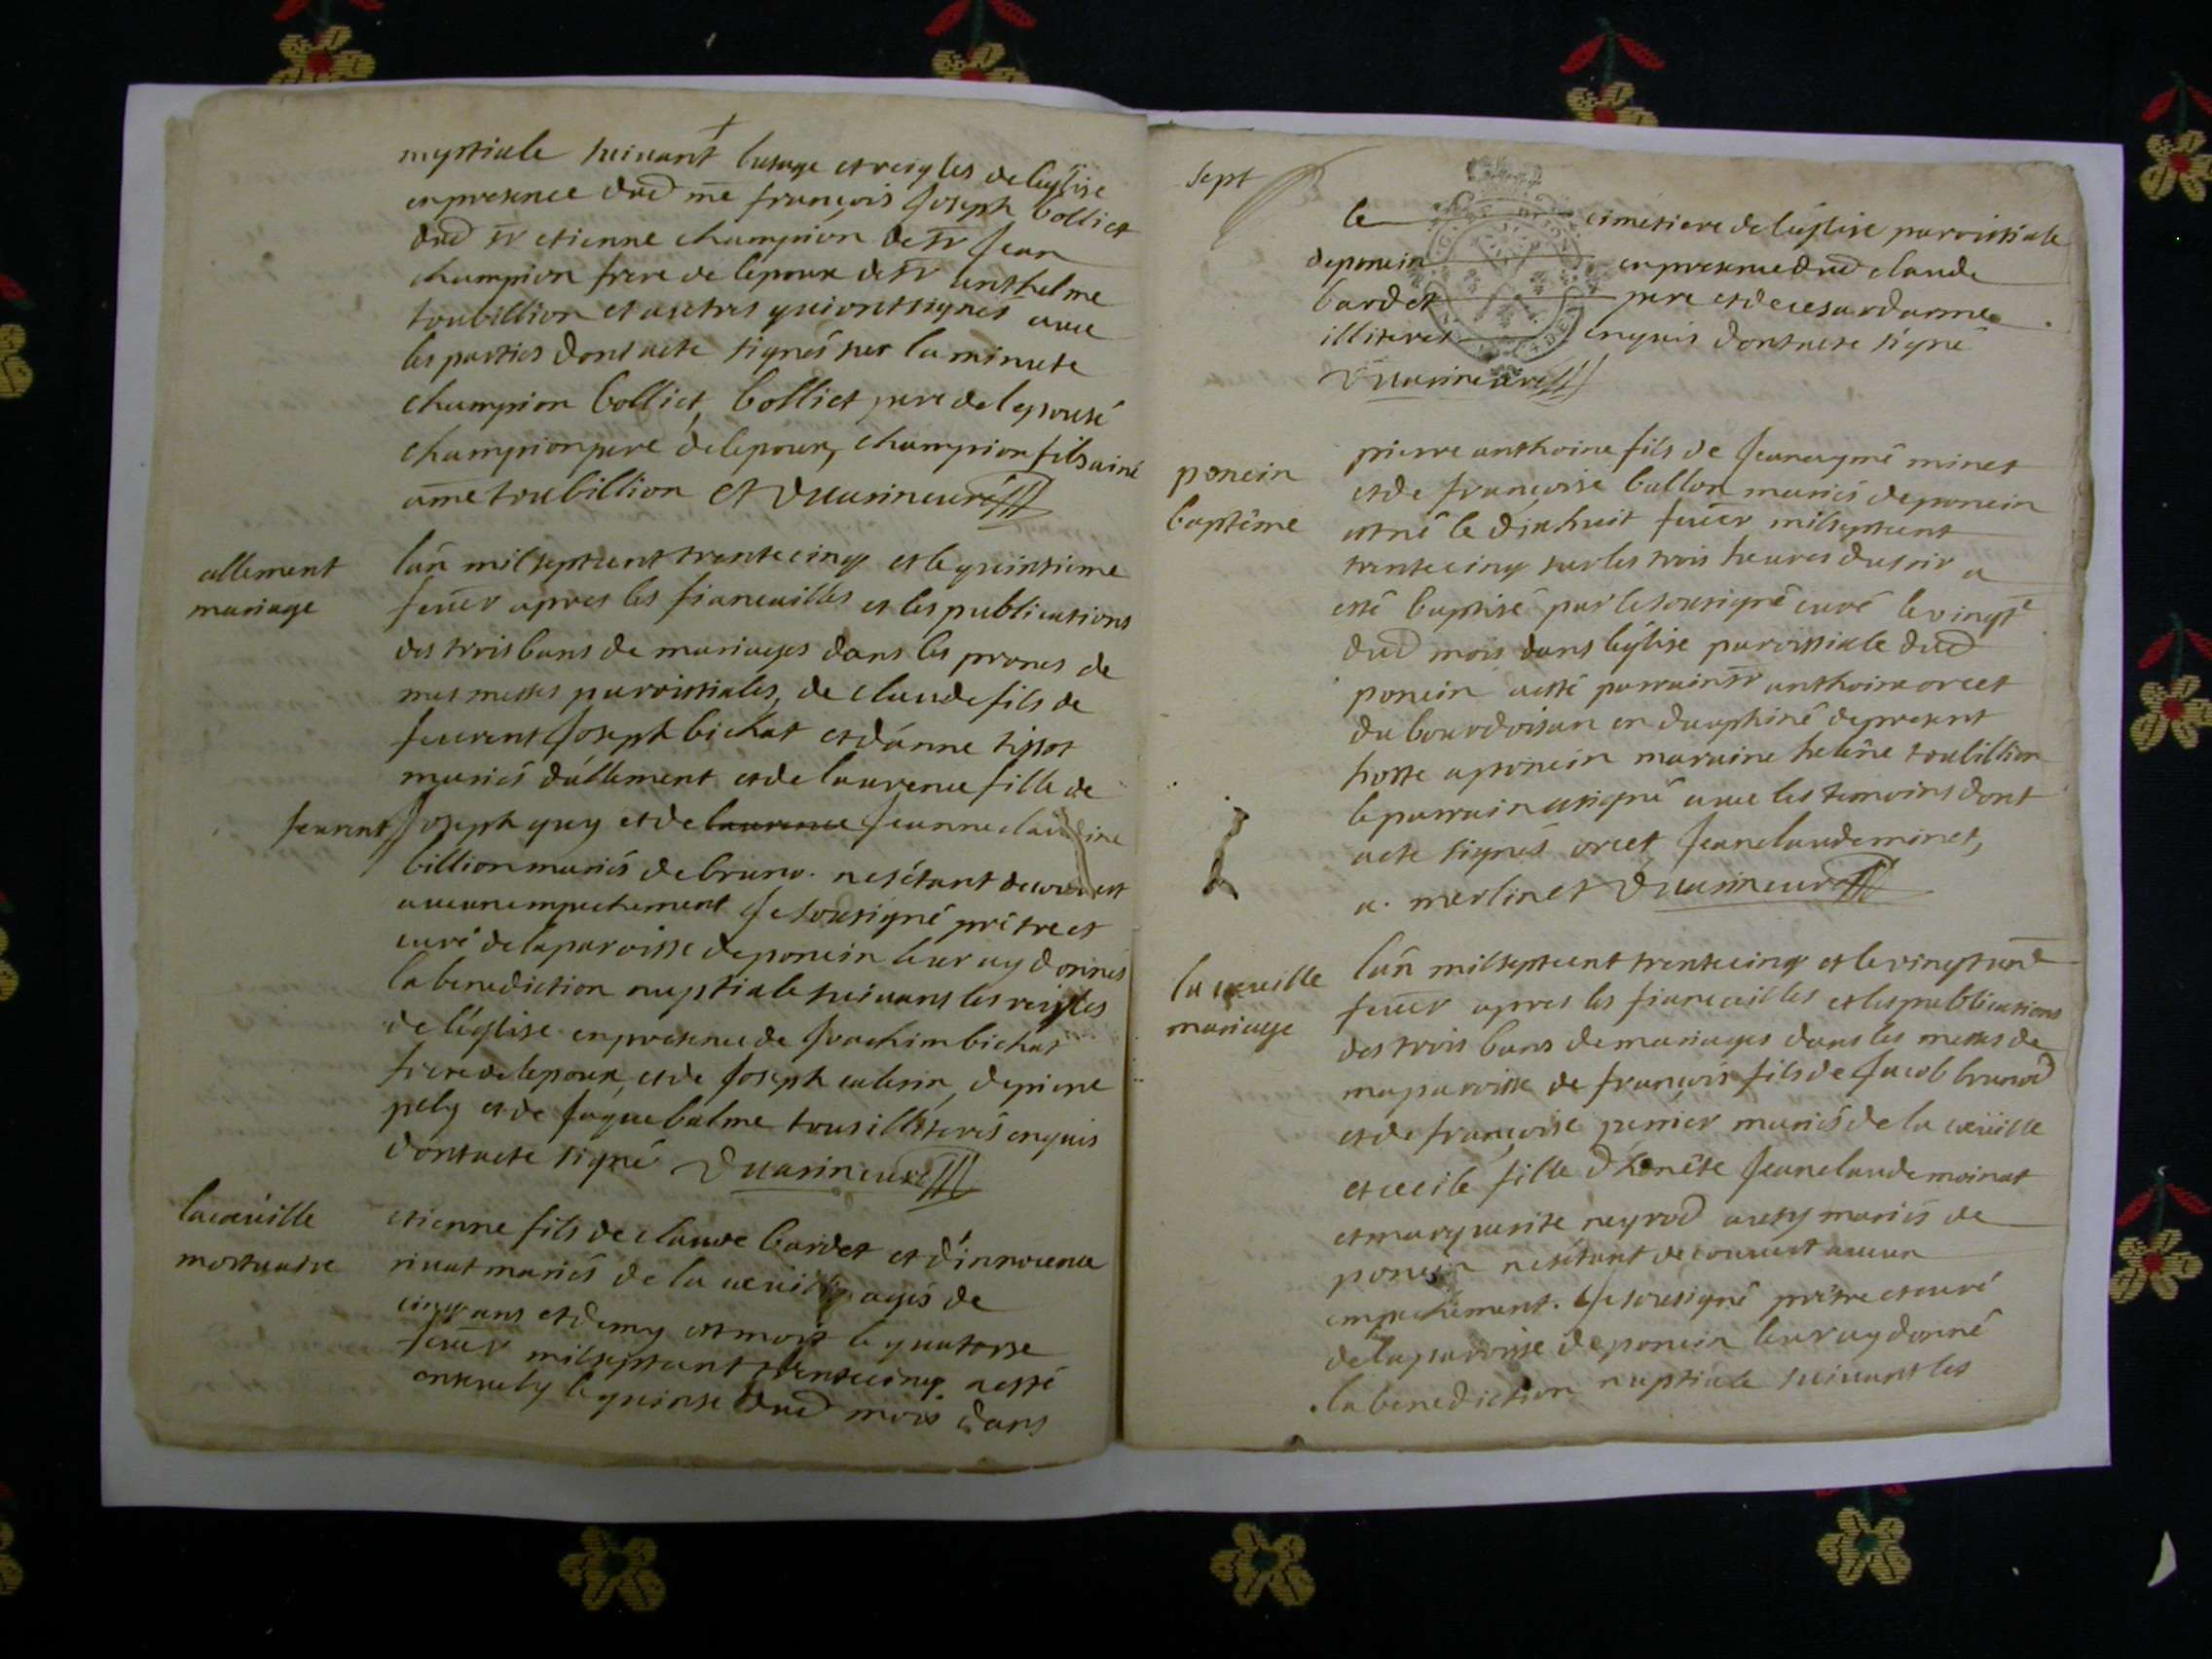 nuptiale suivant lusage et reigles de leglise
en presence dud me françois Joseph bolliet
dud sr etienne champion de sr Jean
champion frere de lepoux de sr anthelme
toubillion et autres qui ont signés avec
les parties dont acte signés sur la minute
champion bolliet, bolliet pere de lepouse
champion pere de lepoux, champion fils ainé
ame toubillion et Duasine curé
allement
mariage
lan mil sept cent trente cinq et le quinsieme
fevr apres les fiancailles et les publications
des trois bans de mariages dans les prones de
mes messes paroissiales, de claude fils de
feu rent Joseph bichat et dánne tissot
mariés dállement et de laurence fille de
feu rent Joseph guy et de laurence Jeanne claudine
billion mariés de bruno. nesétant decouvert
aucun empechement Je sousigné prêtre et
curé de la paroisse de poncin leur ay donnés
la benediction nuptiale suivant les reigles
de léglise en presence de Joachim bichat
frere de lepoux, et de Joseph , de pierre
pely et de Jaque balme tous illiterés enquis
dont acte signé Duasine curé
la cueille
mortuaire
etienne fils de claude bardet et dínnocence
rivat mariés de la cueille agés de
cinq ans et demy est mort le quatorse
fevr mil sept cent trente cinq. a esté
ensevely le quinse dud mois dans
sept
le cimetiere de léglise paroissiale
de poncin en presence dud claude
bardet pere et de cesar darme
illiterés enquis dont acte signé
Duasine curé
poncin
baptême
pierre anthoine fils de Jean aymé minet
et de françoise ballon mariés de poncin
est né le dixhuit fevr mil sept cent
trente cinq sur les trois heures du soir a
esté baptisé par le sousigné curé le vingte
dud mois dans léglise paroissiale dud
poncin a esté parrain sr anthoine orcet
du bourdoisan en dauphiné de present
hoste a poncin marraine heléne toubillion
le parrain a signé avec les temoins dont
acte signés orcet Jean claude minet,
a. merlin et Duasine curé
la cueille
mariage
lan mil sept cent trente cinq et le vingt un e
fevr apres les fiancailles et les publications
des trois bans de mariages dans les messes de
ma paroisse de françois fils de Jacob brunod
et de françoise mariés de la cueille
et cecile fille dhonéte Jean claude moinat
et marguerite neyrod aussy mariés de
poncin nesétant decouvert aucun
empechement. Je sousigné prêtre et curé
de la paroisse de poncin leur ay donné
la benediction nuptiale suivant les